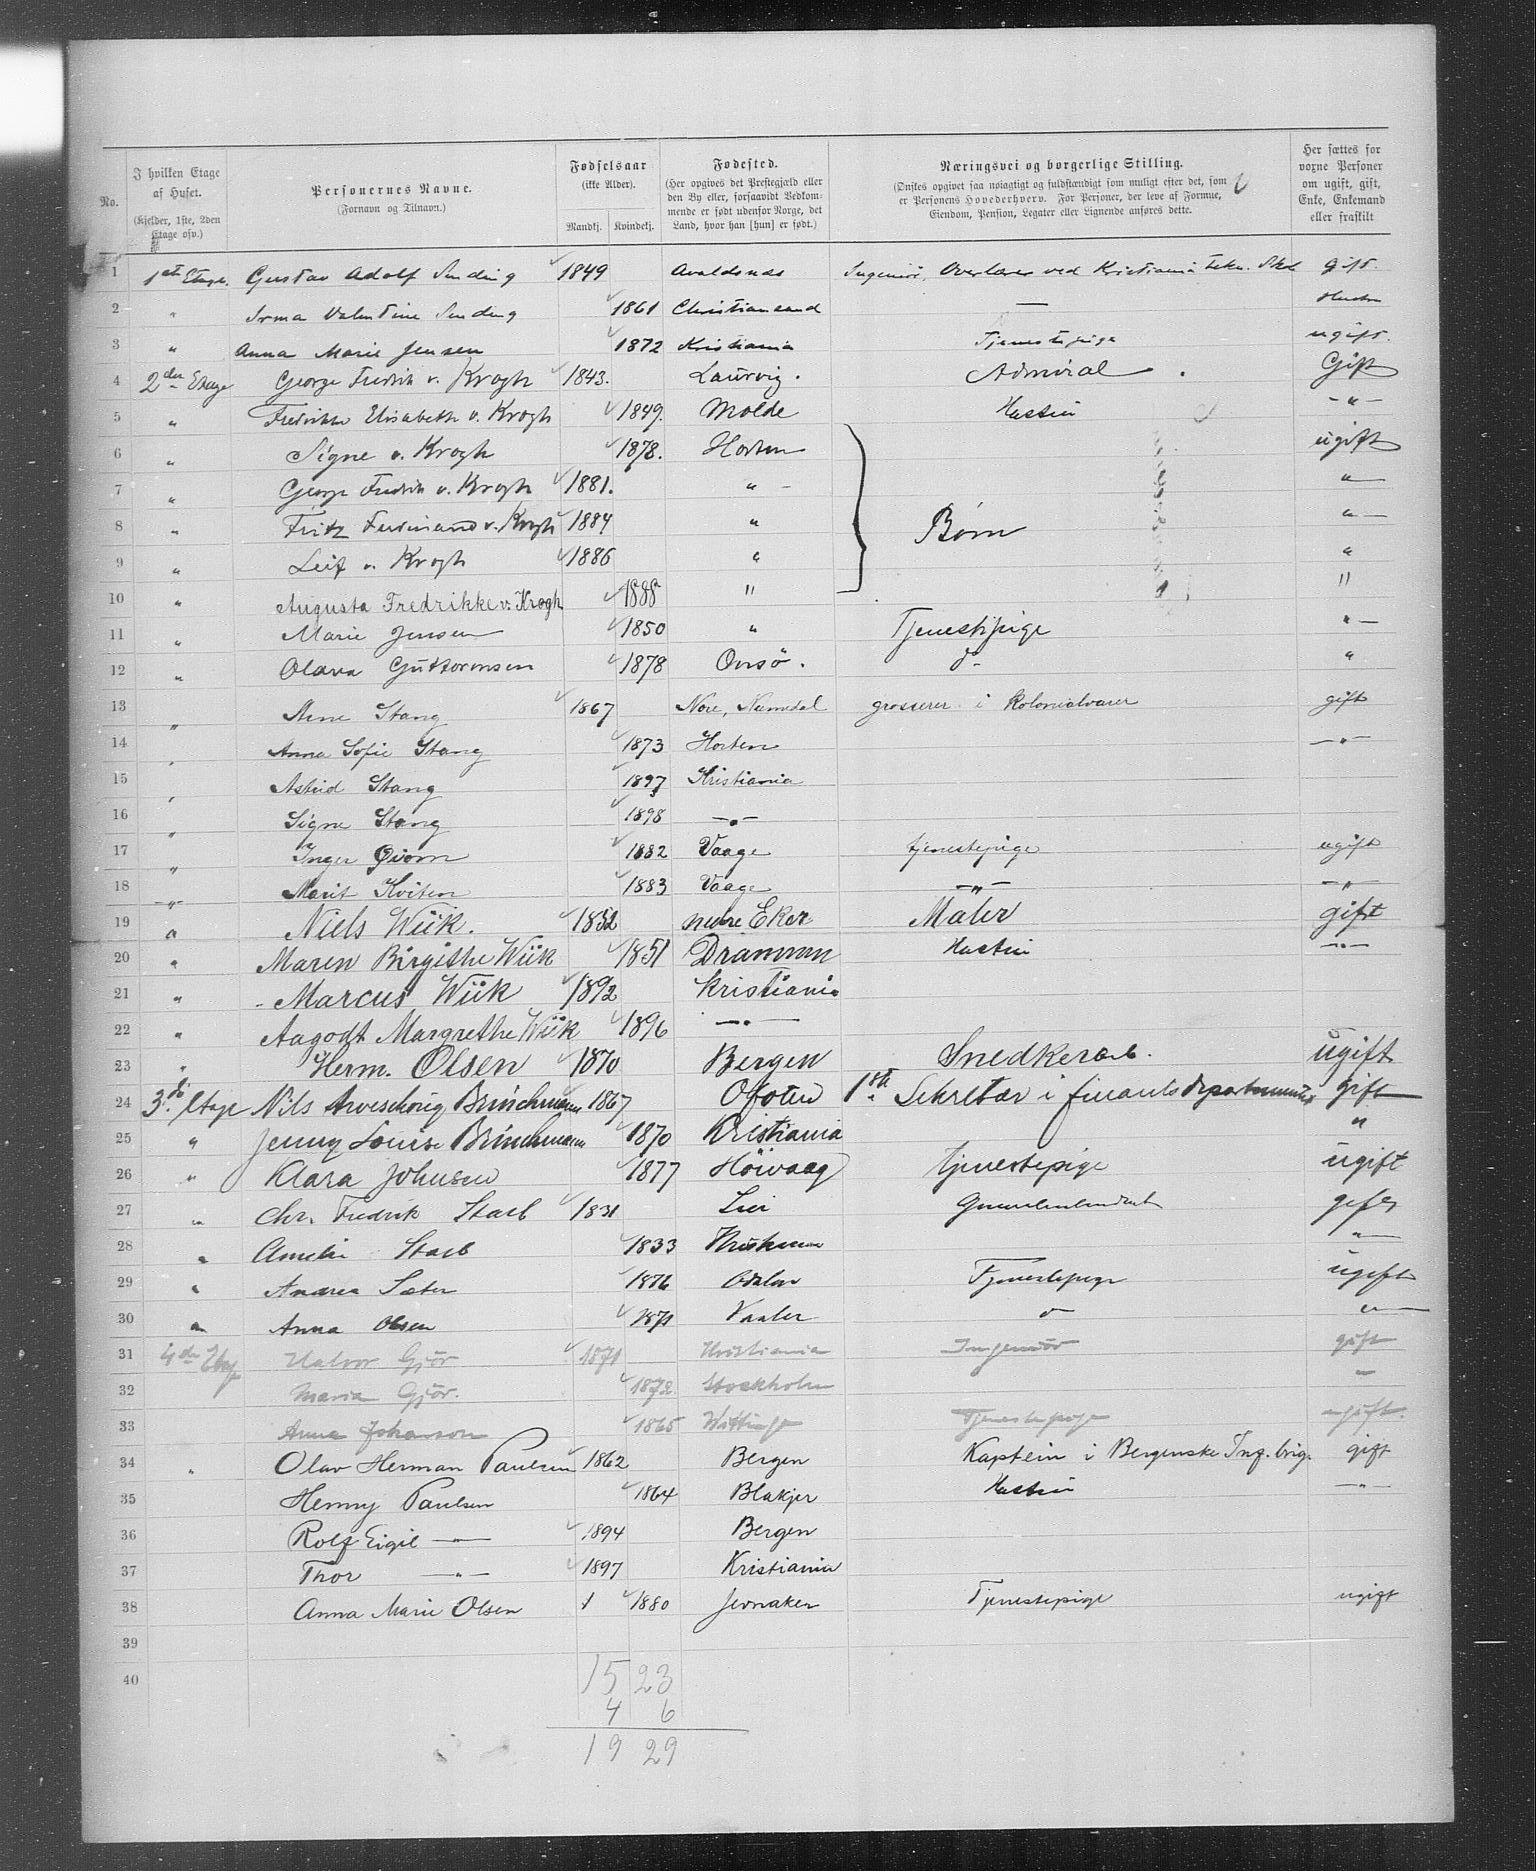 No. | I hvilken Etage af Huset. (Kjelder, 1ste, 2den Etage osv.) | Personernes Navne. (Fornavn og Tilnavn.) | Fødselsaar (ikke Alder). Mandkj. Kvindekj. | Fødested. (Her opgives det Prestegjæld eller den By eller, forsaavidt Vedkommende er født udenfor Norge, det Land, hvor han [hun] er født.) | Næringsvei og borgerlige Stilling. (Ønskes opgivet saa nøiagtigt og fuldstændigt som muligt efter det, som er Personens Hovederhverv. For Personer, der leve af Formue, Eiendom, Pension, Legater eller Lignende anføres dette. | Her sættes for voxne Personer om ugift, gift, Enke, Enkemand eller fraskilt
1 1ste Etage. Gustav Adolf Sinding 1849 Avaldsnes Ingeniør, Overlærer ved Kristiania tekn. Skole gift.
2 " Irma Valentine Sinding 1861 Christiansand — Hustru
3 " Anna Marie Jensen 1872 Kristiania Tjenestepige ugift.
4 2den Etage George Fredrik v. Krogh 1843. Laurvig. Admiral. Gift
5 " Fredrikke Elisabeth v. Krogh 1849. Molde Hustru -"-
6 " Signe v. Krogh 1878. Horten ugift
7 " George Fredrik v. Krogh 1881. " - "-
8 " Fritz Ferdinand v. Krogh 1884 " Børn "-
9 " Leif v. Krogh 1886 " "
10 " Augusta Fredrikke v. Krogh 1888 " "
11 " Marie Jensen 1850 " Tjenestepige "-
12 " Olava Guttormsen 1878 Onsø. do "
13 " Arne Stang 1867 Nore, Numedal grosserer i Kolonialvarer gift
14 " Anna Sofie Stang 1873 Horten -"-
15 " Astrid Stang 1897 Kristiania
16 " Signe Stang 1898 -"-
17 " Inger 1882 Vaage tjenestepige ugift
18 -"- Marit Kviten 1883 Vaage -"- -"-
19 " Niels Wiik. 1852 nedre Eker Maler gift
20 " Maren Birgithe Wiik 1851 Drammen Hustru -"-
21 " Marcus Wiik 1892 Kristiania
22 " Aagodt Margrethe Wiik 1896 -"-
23 " Herm. Olsen 1870 Bergen Snedkerarb. ugift
24 3die Etage Nils Arveschoug Brinchmann 1867 Ofoten 1ste Sekretær i finantsdepartementet gift
25 " Jenny Louise Brinchmann 1870 Kristiania "
26 " Klara Johnsen 1877 Høivaag tjenestepige ugift
27 " Chr. Fredrik Staeb 1831 Lier gift
28 " Amelie Staeb 1833 "-
29 " Andrea Sæter 1876 Odalen Tjenestepige ugift
30 " Anna Olsen 1871 Vaaler do "-
31 4de Etage Halvor Gjør 1871 Kristiania Ingeniør gift
32 Maria Gjør. 1872 Stockholm "
33 Anna Johanson 1865 Tjenestepige ugift.
34 " Olav Herman Paulsen 1862 Bergen Kaptein i Bergenske Inf. brig. gift
35 Henny Paulsen 1864 Blakjer Hustru -"-
36 Rolf Eigil -"- 1894 Bergen
37 Thor -"- 1897 Kristiania
38 Anna Marie Olsen 1 1880 Jevnaker Tjenestepige ugift
39
40
15 23
4 6
19 29